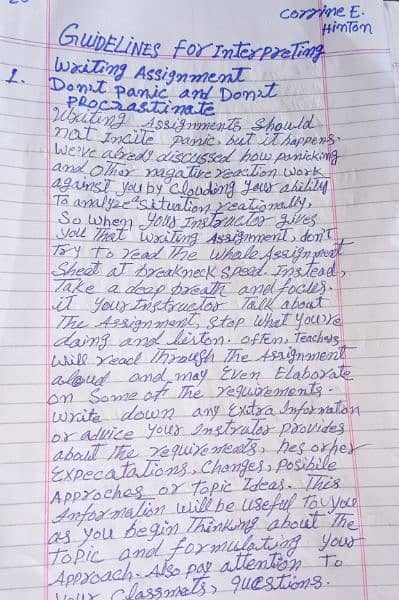 Corrine E.
Hinton
GUIDELINES For Interpreting
1. Writing Assignment
Don't panic and Don't
PROCRastinate
Writing Assignments Should
not Incite panic, but it happens.
We've already discussed how panicking
and other nagative reaction work
against you by Clouding your ability
To analyze a situation reationally,
So when your Instructor gives
you That writing Assignment, don't
Try To read The whole Assignment
Sheet at breakneck speed. Instead,
Take a deep breath and focus.
if your Instructor Talk about
The Assignment, Stop what you're
doing and liston. often, Teachers
will read Through The Assignment
aloud and may Even Elaborate
on Some off The requirements.
write down any Extra Information
or advice your Instrutor provides
about The requirements, hes orher
Expecatations, Changes, posibile
Approches or Topic Ideas. This
Information will be useful To you
as you begin Thinking about The
Topic and formulating your
Approach. Also pay attention To
your Classmets, questions.